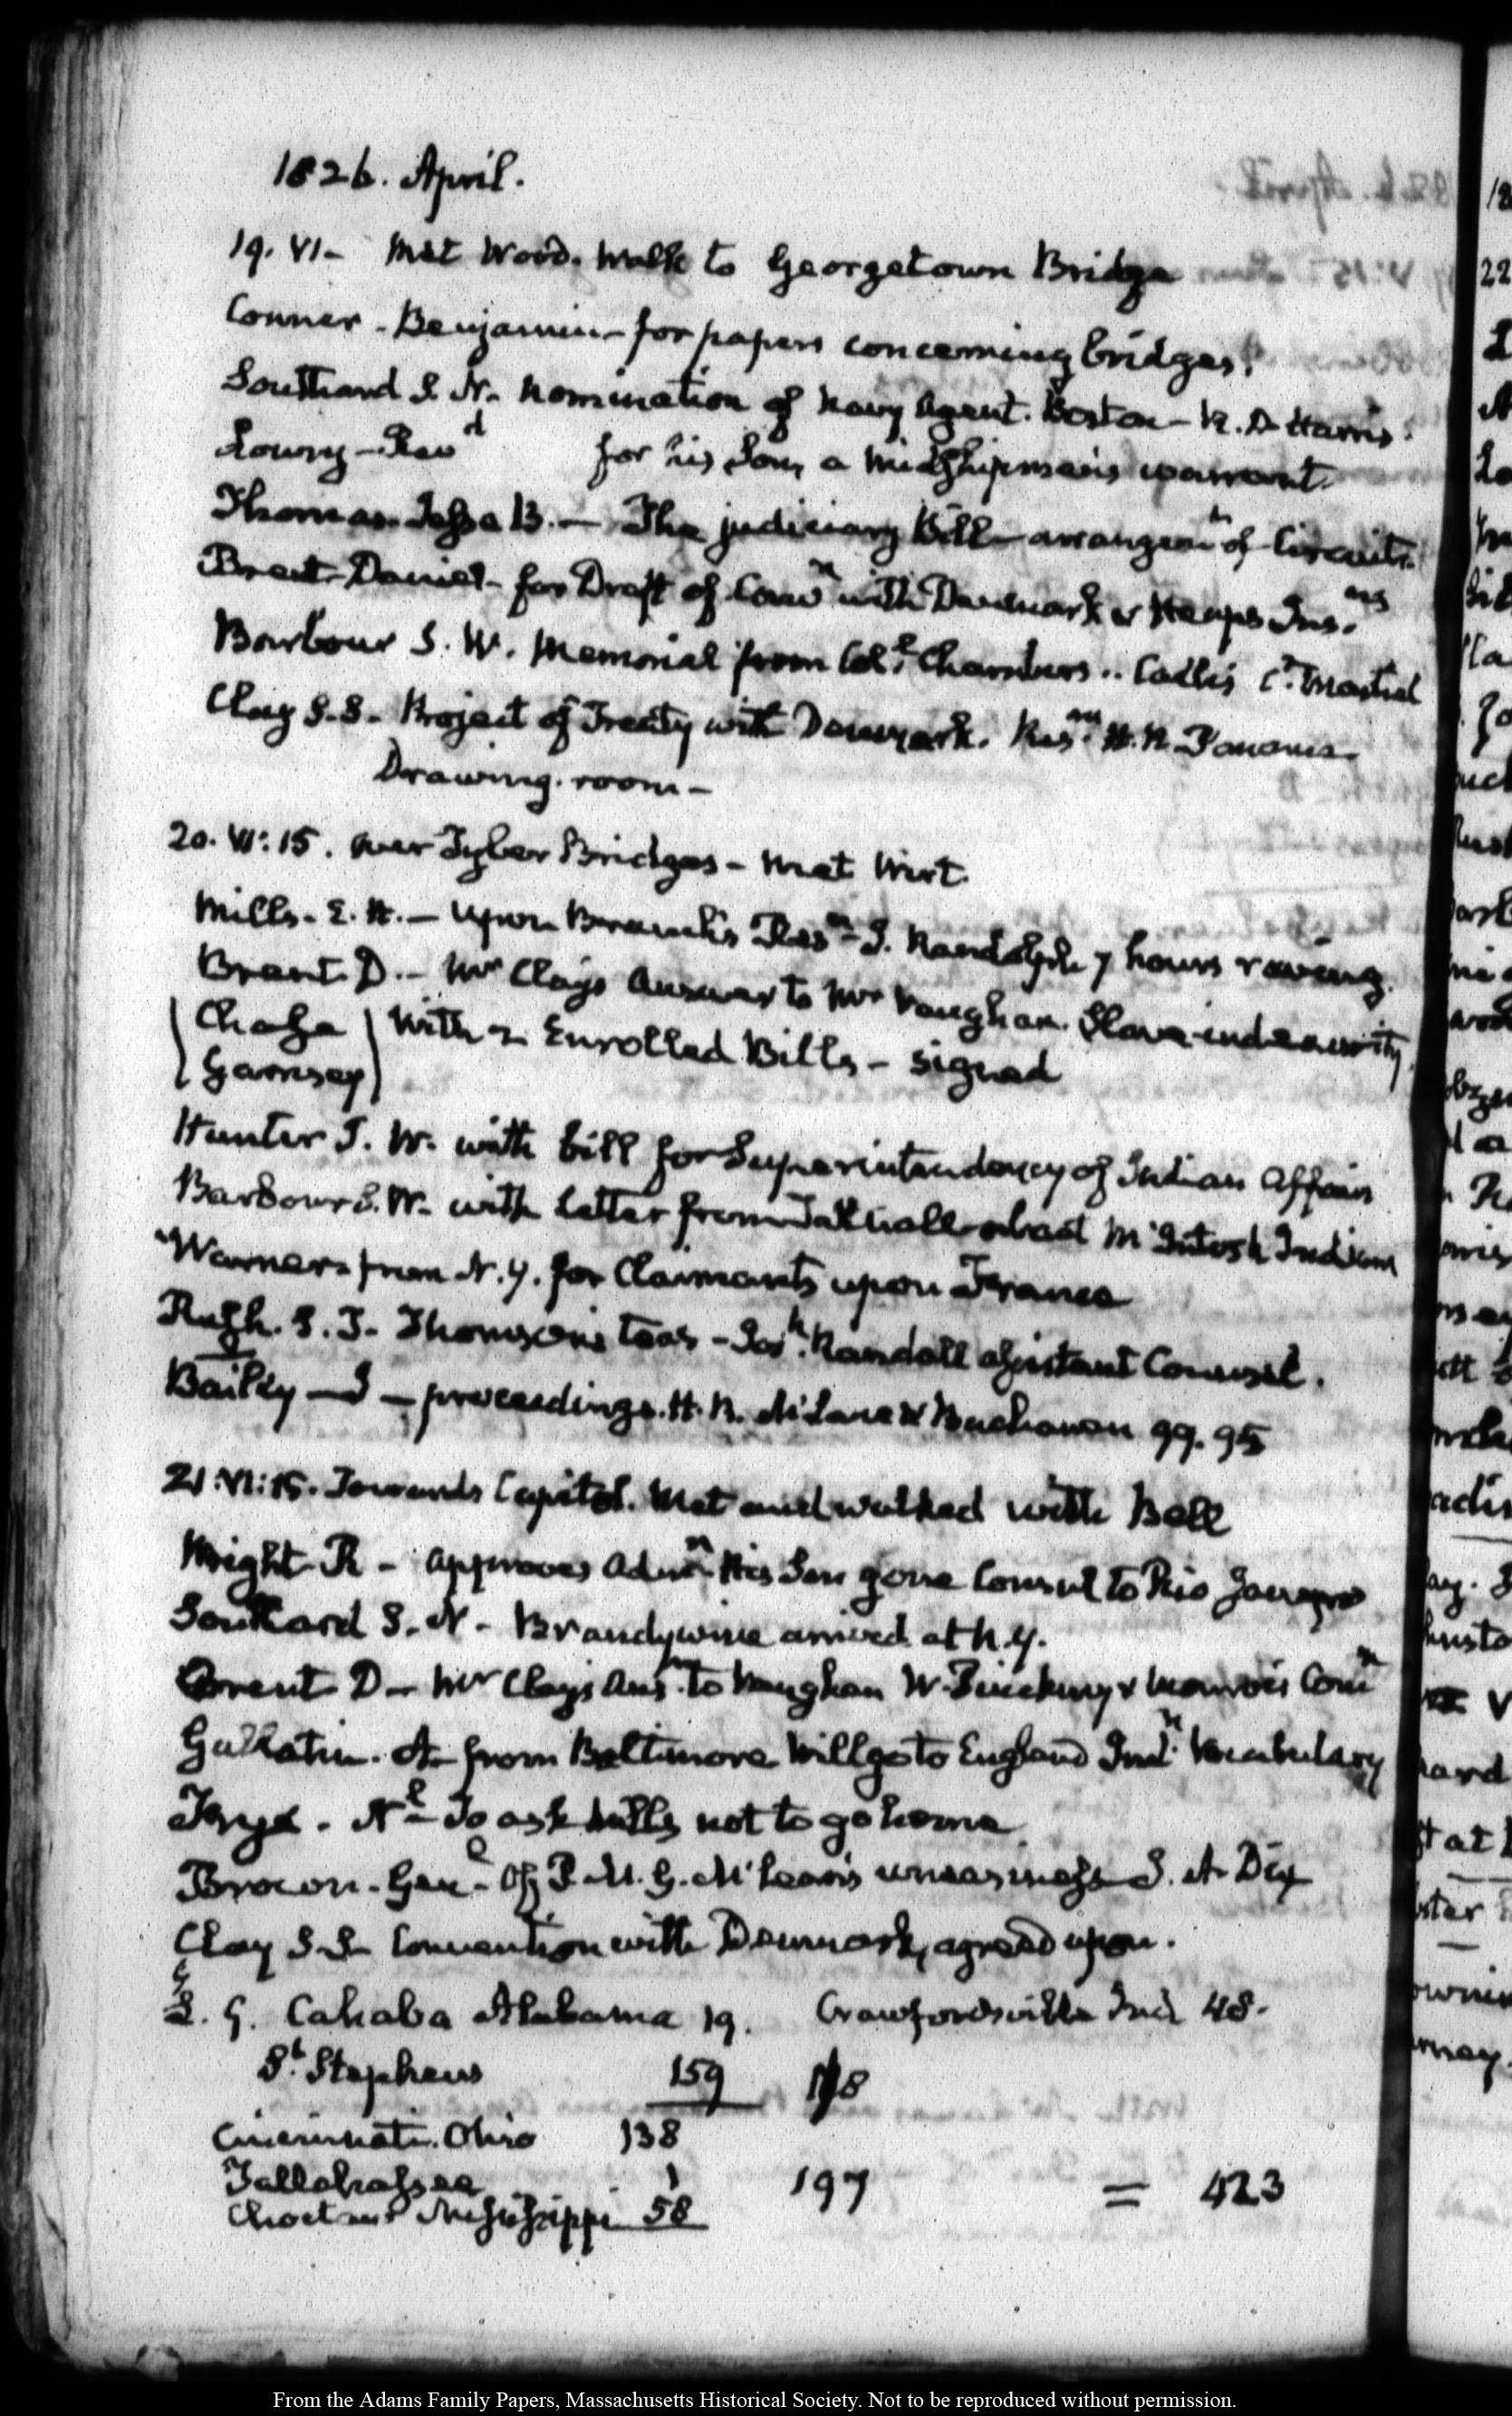 1826. April.
19. VI- Met Wood. Walk to Georgetown Bridge
Conner - Benjamin - for papers concerning bridges.
Southard S. N. Nomination of Navy Agent. Boston - R. D Harris.
Lowry - Revd for his Son, a Midshipman's warrant.
Thomas. Jesse B. - The judiciary Bill - arrangemt of Circuits.
Brent Daniel - for Draft of Convn with Denmark &
Barbour S. W. Memorial from Coll. Chambers .. Ct. Martial
Clay S. S. Project of Treaty with Denmark. H. R. Panama.
Drawing. room -
20. VI: 15. over Tyber Bridges - Met Wirt.
Mills. E. H. - upon Branch's Resn - J. Randolph 7 hours raving.
Brent. D. - Mr Clay's answer to Mr Vaughan. Slave-indemnity
Chase
Garnsey
With 2 Enrolled Bills - signed
Hunter J. W. with bill for Superintendency of Indian Affairs
Barbour S. W. with Letter from Tatnall about McIntosh Indians
Warner from N. Y. for Claimants upon France
Rush. S. T. Thomson's teas - Josh. Randall assistant Counsel.
Bailey - J - proceedings. H. R. McLane & Buchanan 99. 95
21. VI: 15. Towards Capitol. Met and walked with Bell
Wright R - approves Admn His Son gone Consul to Rio Janeyro
Southard S. N - Brandywine arrived at N. Y.
Brent D - Mr Clay's Ansr to Vaughan W. Pinckney & Monroe's Comn
Gallatin. A - from Baltimore Will go to England Indn Vocabulary
Force Nl - To ask Mills not to go home
Brown - Genl - Of P. M. G. McLean's uneasiness J. A. Dix
Clay S. S. Convention with Denmark, agreed upon.
L. G. Cahaba Alabama 19. Crawfordsville Ind 48.
St. Stephens 159 178
Cincinnati. Ohio 138
Tallahassee 1 197 = 423
Choctaw Mississippi 58
From the Adams Family Papers, Massachusetts Historical Society. Not to be reproduced without permission.